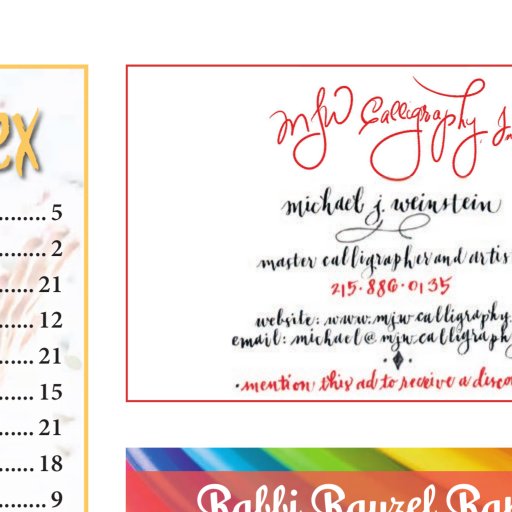 ex
5
2
21
12
21
15
21
18
9
MJW Calligraphy, In
michael j. weinstein
master calligrapher and artis
215·886·0135
website: www.mjwcalligraphy.
email: michael@mjwcalligraph
·mention this ad to receive a disco
Rabbi Rayzel Rap